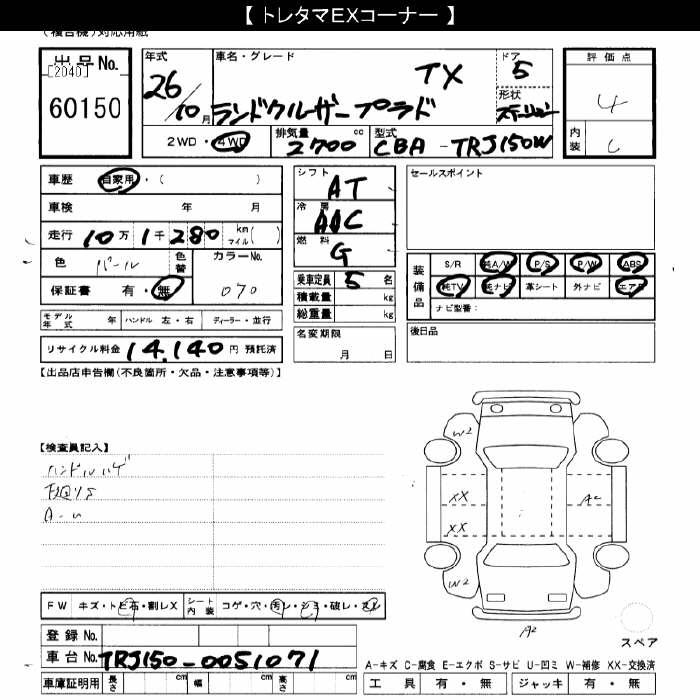 【 トレタマEXコーナー 】
(複合機)対応用紙
出品No.
[2040]
60150
年式
26/10月
車名・グレード
TX
ランドクルーザープラド
ドア
5
形状
ステーション
評価点
4
内装
C
2WD・4WD
排気量 2700 cc
型式 CBA-TRJ150W
車歴 自家用・( )
車検 年 月
走行 10万1千280 km マイル( )
色 パール 色替
カラーNo. 070
保証書 有・無
モデル年式 年 ハンドル 左・右 ディーラー・並行
リサイクル料金 14,140円 預託済
シフト AT
冷房 AAC
燃料 G
乗車定員 5名
積載量 kg
総重量 kg
名変期限
月 日
セールスポイント
装備品
S/R 純A/W P/S P/W ABS
純TV 純ナビ 革シート 外ナビ エアB
ナビ型番:
後日品
【出品店申告欄(不良箇所・欠品・注意事項等)】
【検査員記入】
ハンドルハゲ
下廻りS
W2
XX
XX
W2
A2
A2
FW キズ・トビ石・割レX
シート内装 コゲ・穴・汚レ・シミ・破レ・スレ
登録No.
車台No. TRJ150-0051071
車庫証明用 長さ cm 幅 cm 高さ cm
スペア
A-キズ C-腐食 E-エクボ S-サビ U-凹ミ W-補修 XX-交換済
工具 有・無 ジャッキ 有・無